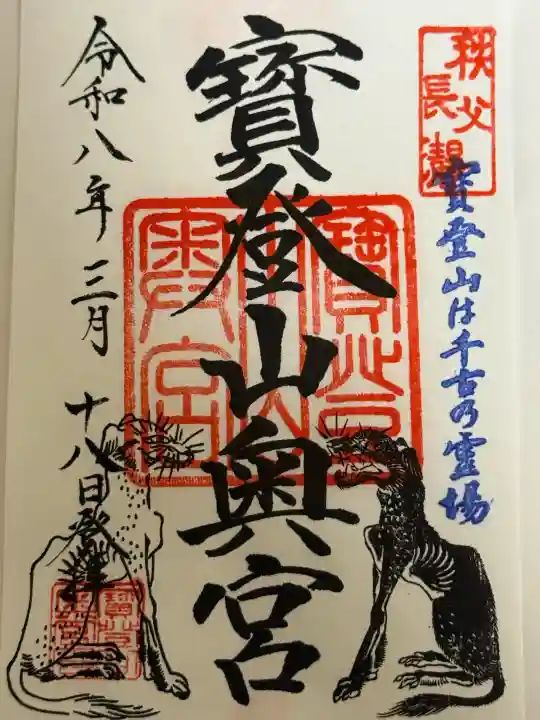 秩父
長瀞
寶登山は千古乃霊場
寶登山奥宮
寶登山
奥宮
令和八年三月十八日登拝